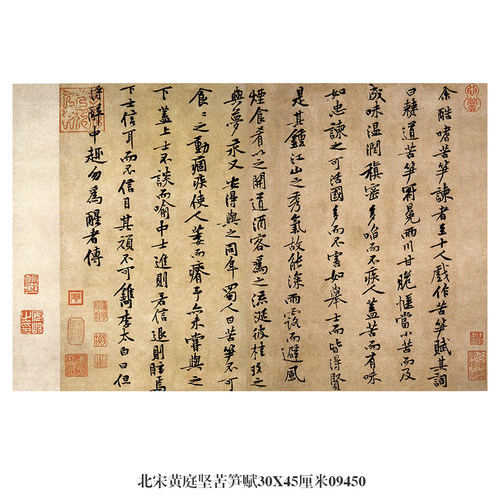 余酷嗜苦笋諫者至十人戲作苦笋賦其詞
曰僰道苦笋冠冕兩川甘脆愜當小苦而及
成味溫潤稹密多啗而不疾人蓋苦而有味
如忠諫之可活國多而不害如舉士而皆得賢
是其鍾江山之秀氣故能深雨露而避風
煙食肴以之開道酒客為之流涎彼桂玫之
與夢永又安得與之同年蜀人曰苦笋不可
食〻之動痼疾使人萎而瘠予亦未嘗與之
下蓋上士不談而喻中士進則若信退則眩焉
下士信耳而不信目其頑不可鐫李太白曰但
得醉中趣勿為醒者傳
北宋黄庭坚苦笋赋30X45厘米09450